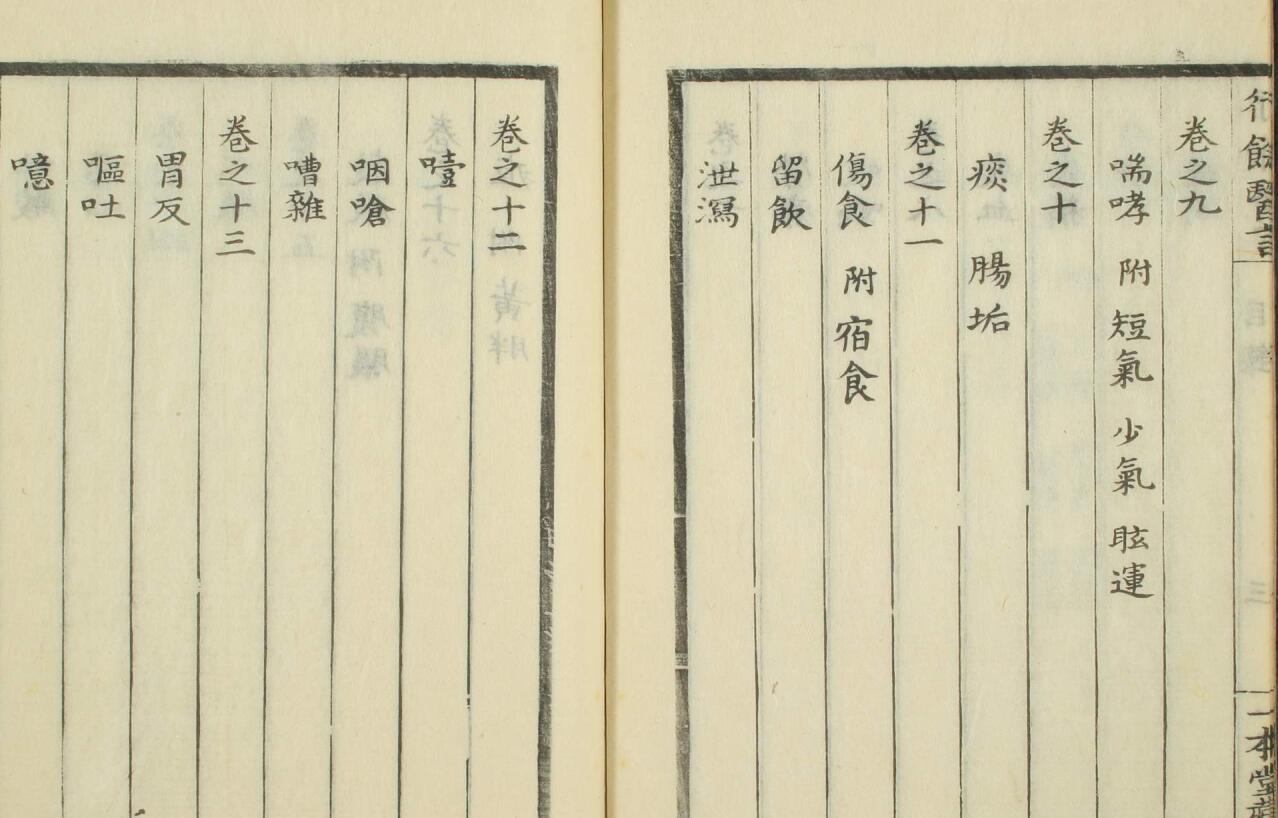 行餘醫言
一本堂
卷之九
喘哮 附 短氣 少氣 眩運
卷之十
痰 腸垢
卷之十一
傷食 附 宿食
留飲
泄瀉
卷之十二
噎
咽嗆
嘈雜
卷之十三
胃反
嘔吐
噫